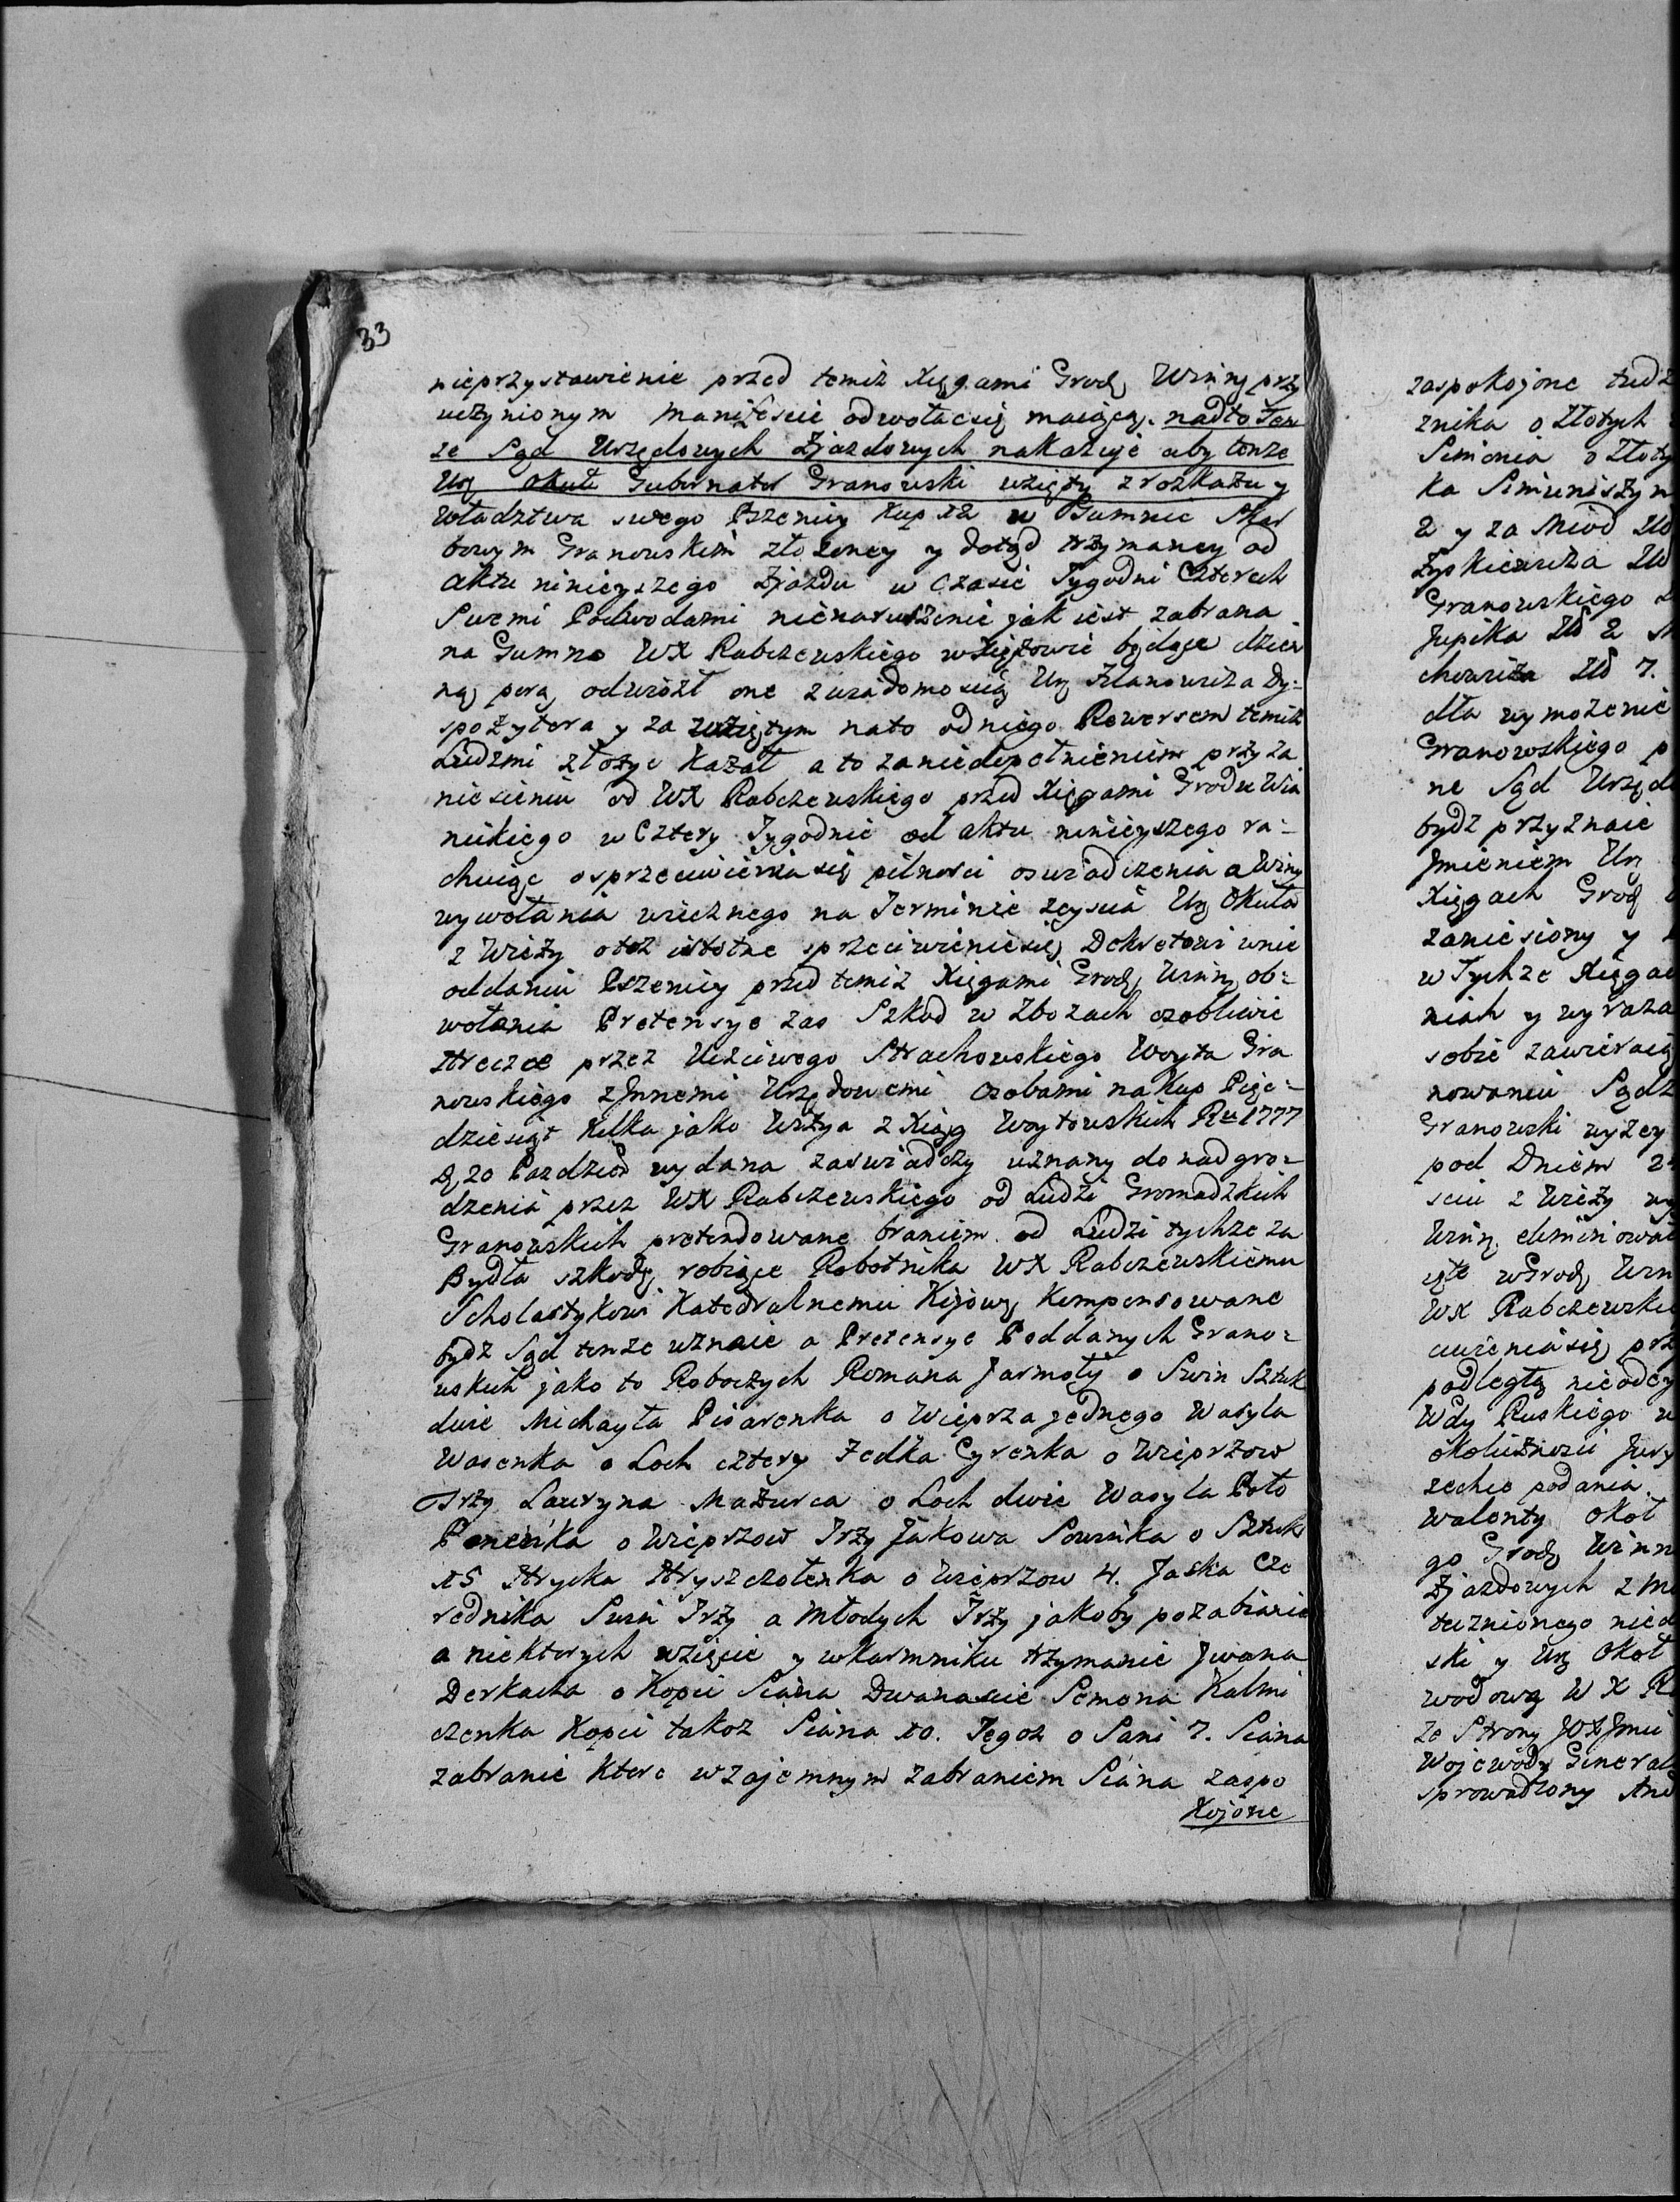 33
nieprzystawienie przed temiż Xięgami Grodz Winn przy
uczynionym Manifescie odwołacsię maiącą. nadto Ten
ze Sąd Urzędowych Zjazdowych nakazuje aby tenze
Urz Okuł Gubernator Granowski wzięty z rozkazu y
Władztwa swego Pszenicy Kup 12 w Gumnie Skar
bowym Granowskim złożoney y dotąd trzymaney od
aktu ninieyszego Zjazdu w Czasie Tygodni Czterech
Swemi Podwodami nienaruszenie jak iest zabrana
na Gumno WX Rabczewskiego w Xiężowie będące dzien
ną porą odwiozł one z wiadomoscią Urz Dy=
spozytora y za wziętym nato od niego Rewersem temiż
Ludzmi złozyc Kazał a to za niedopełnieniem przy za
niesieniu od WX Rabczewskiego przed Xięgami Grodu Win
nickiego w Cztery Tygodnie od aktu ninieyszego ra=
chuiąc o sprzeciwieniasię pilnosci oswiadczenia a Winy
wywołania wiecznego na Terminie zeyscia Urz Okuła
z Wiezy otoz istotne sprzeciwieniesię Dekretowi wnie
oddaniu Pszenicy przed temiz Xięgami Grodz Winn ob=
wołania Pretensye zas Szkod w Zbozach osobliwie
Hreczce przez Uczciwego Strachowskiego Woyta Gra
nowskiego z Jnnemi Urzędowemi Osobami na Kup Pięc=
dziesiąt Kilka jako Wizya z Xiąg Woytowskich Ru 1777
D 20 Pazdzier wydana zaswiadczy uznany do nadgro=
dzenia przez WX Rabczewskiego od Ludzi Gromadzkich
Granowskich pretendowane braniem od Ludzi tychze za
Bydła szkodę robiące Robotnika WX Rabczewskiemu
Scholastykowi Katedralnemu Kijow Kompensowane
bydz Sąd tenze uznaie a Pretensye Poddanych Grano=
wskich jako to Roboczych Romana Jarmoły o Swin Sztuk
dwie Michayła Pisarenka o Wieprza jednego Wasyla
Wasenka o Loch cztery Fedka Cyrenka o Wieprzow
Trzy Lawryna Mazurca o Loch dwie Wasyla Poło
o Wieprzow Trzy Jakowa o Sztuk
15 Hrycka Hryszczotenka o Wieprzow 4. Jaska Cze
rednika Swin Trzy a Młodych Trzy jakoby pozabianie
a niektorych wzięcie y wkarmniku trzymanie Jwana
Derkacza o Kopic Siana Dwanascie Semona Kalni
czenka Kopic takoz Siana 10. Tegoz o Sani 7. Siana
zabranie Ktore wzajemnym zabraniem Siana zaspo
Kojone
zaspokojone tudz
znika o Złotych
Simonia o Złoty
ka
2 y za Miod Zło
Granowskiego
Jupika Zło 2
Zło 7.
dła wymozenie
Granowskiego p
ne Sąd Urzęd
bydz przyznaie
Jmieniem Urz
Xięgach Grod
zaniesiony y
w Tychze Xięgac
niah y wyraza
sobie zawieraią
nowaniu Sądz
Granowski wyzey
pod Dniem 2
sciu z Wiezy wy
Winn
w Grodz Winn
WX Rabczewskie
ciwieniasię prz
podległą nieodey
Wdy Ruskiego w
okolicznosci Jury
zechce podania.
Walenty Okoł
go Grodz Winn
Zjazdowych z M
tecznionego nied
ski y Urz Okoł
wodową W X R
ze Strony
Wojewody General
sprowadzony And